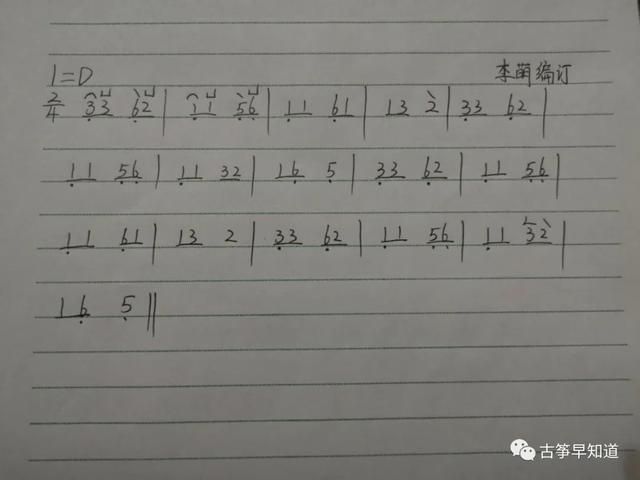 1=D 李萌编订
2/4 33 62 | 11 56 | 11 61 | 13 2 | 33 62 |
11 56 | 11 32 | 16 5 | 33 62 | 11 56 |
11 61 | 13 2 | 33 62 | 11 56 | 11 32 |
16 5 ||
古筝早知道